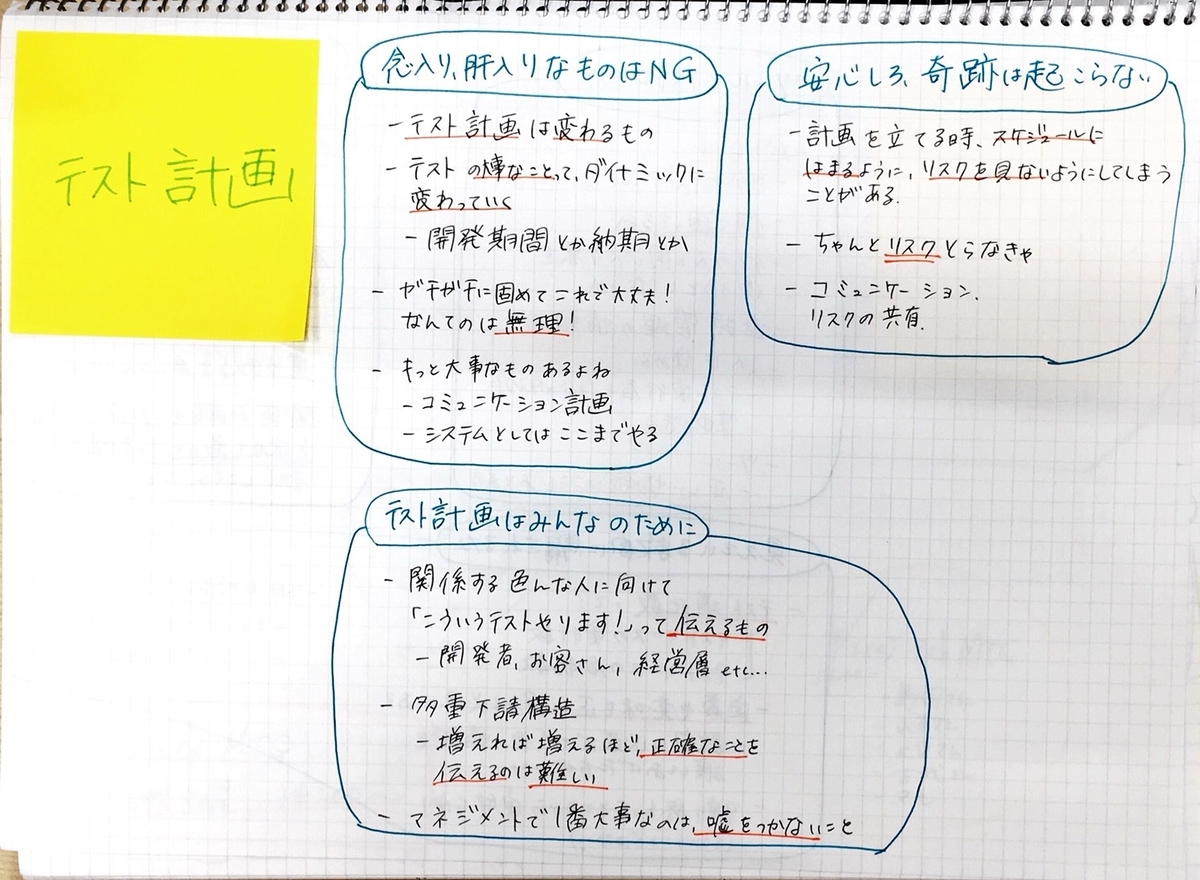 テスト計画
念入り、肝入りなものはNG
- テスト計画は変わるもの
- テストの大事なことって、ダイナミックに
変わっていく
- 開発期間とか納期とか
- ガチガチに固めてこれで大丈夫!
なんてのは無理!
- もっと大事なものあるよね
- コミュニケーション計画
- システムとしてはここまでやる
安心しろ、奇跡は起こらない
- 計画を立てる時、スケジュールに
はまるように、リスクを見ないようにしてしまう
ことがある.
- ちゃんとリスクとらなきゃ
- コミュニケーション.
リスクの共有.
テスト計画はみんなのために
- 関係する色んな人に向けて
「こういうテストやります!」って伝えるもの
- 開発者、お客さん、経営層etc...
- 多重下請構造
- 増えれば増えるほど、正確なことを
伝えるのは難しい
- マネジメントで1番大事なのは、嘘をつかないこと